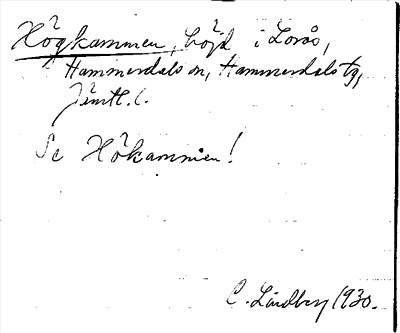 Högkammen, höjd i Lorås,
Hammerdals sn, Hammerdals tg,
Jämtl. l.
Se Hökammen!
C. Lindberg 1930.